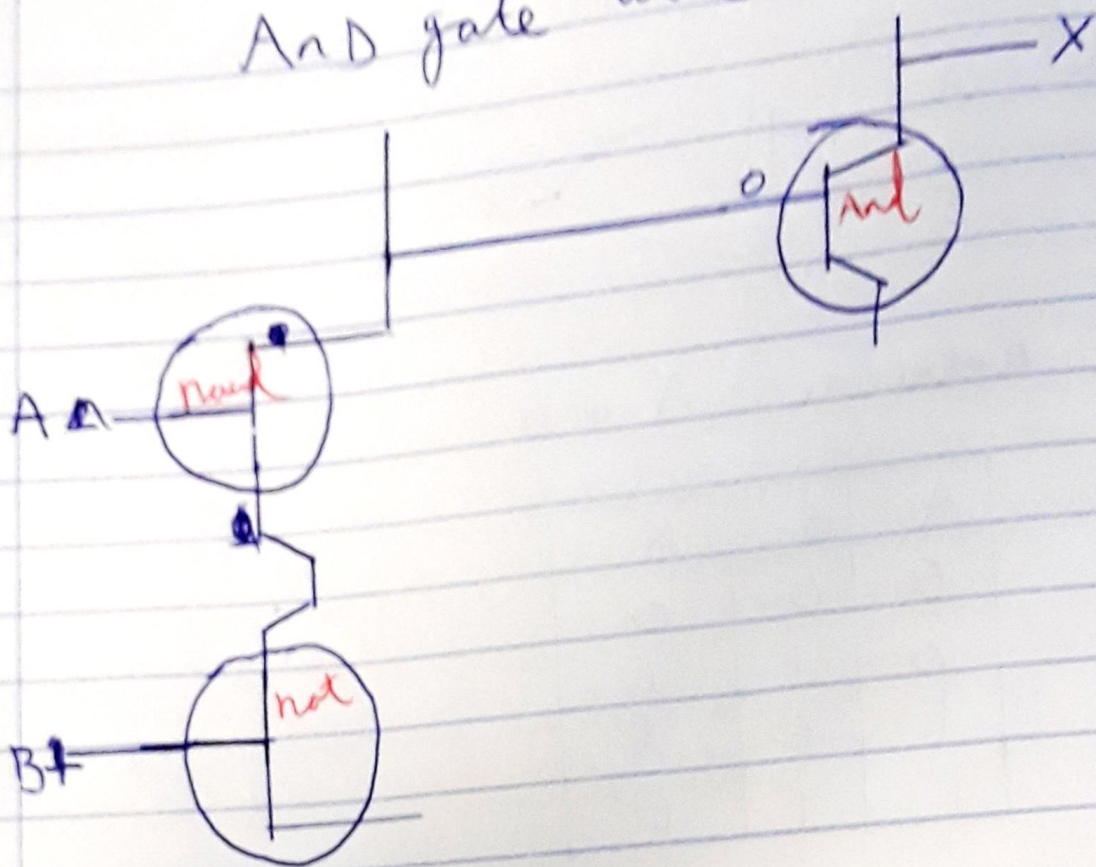 AnD gate
X
O
And
nand
A
not
B